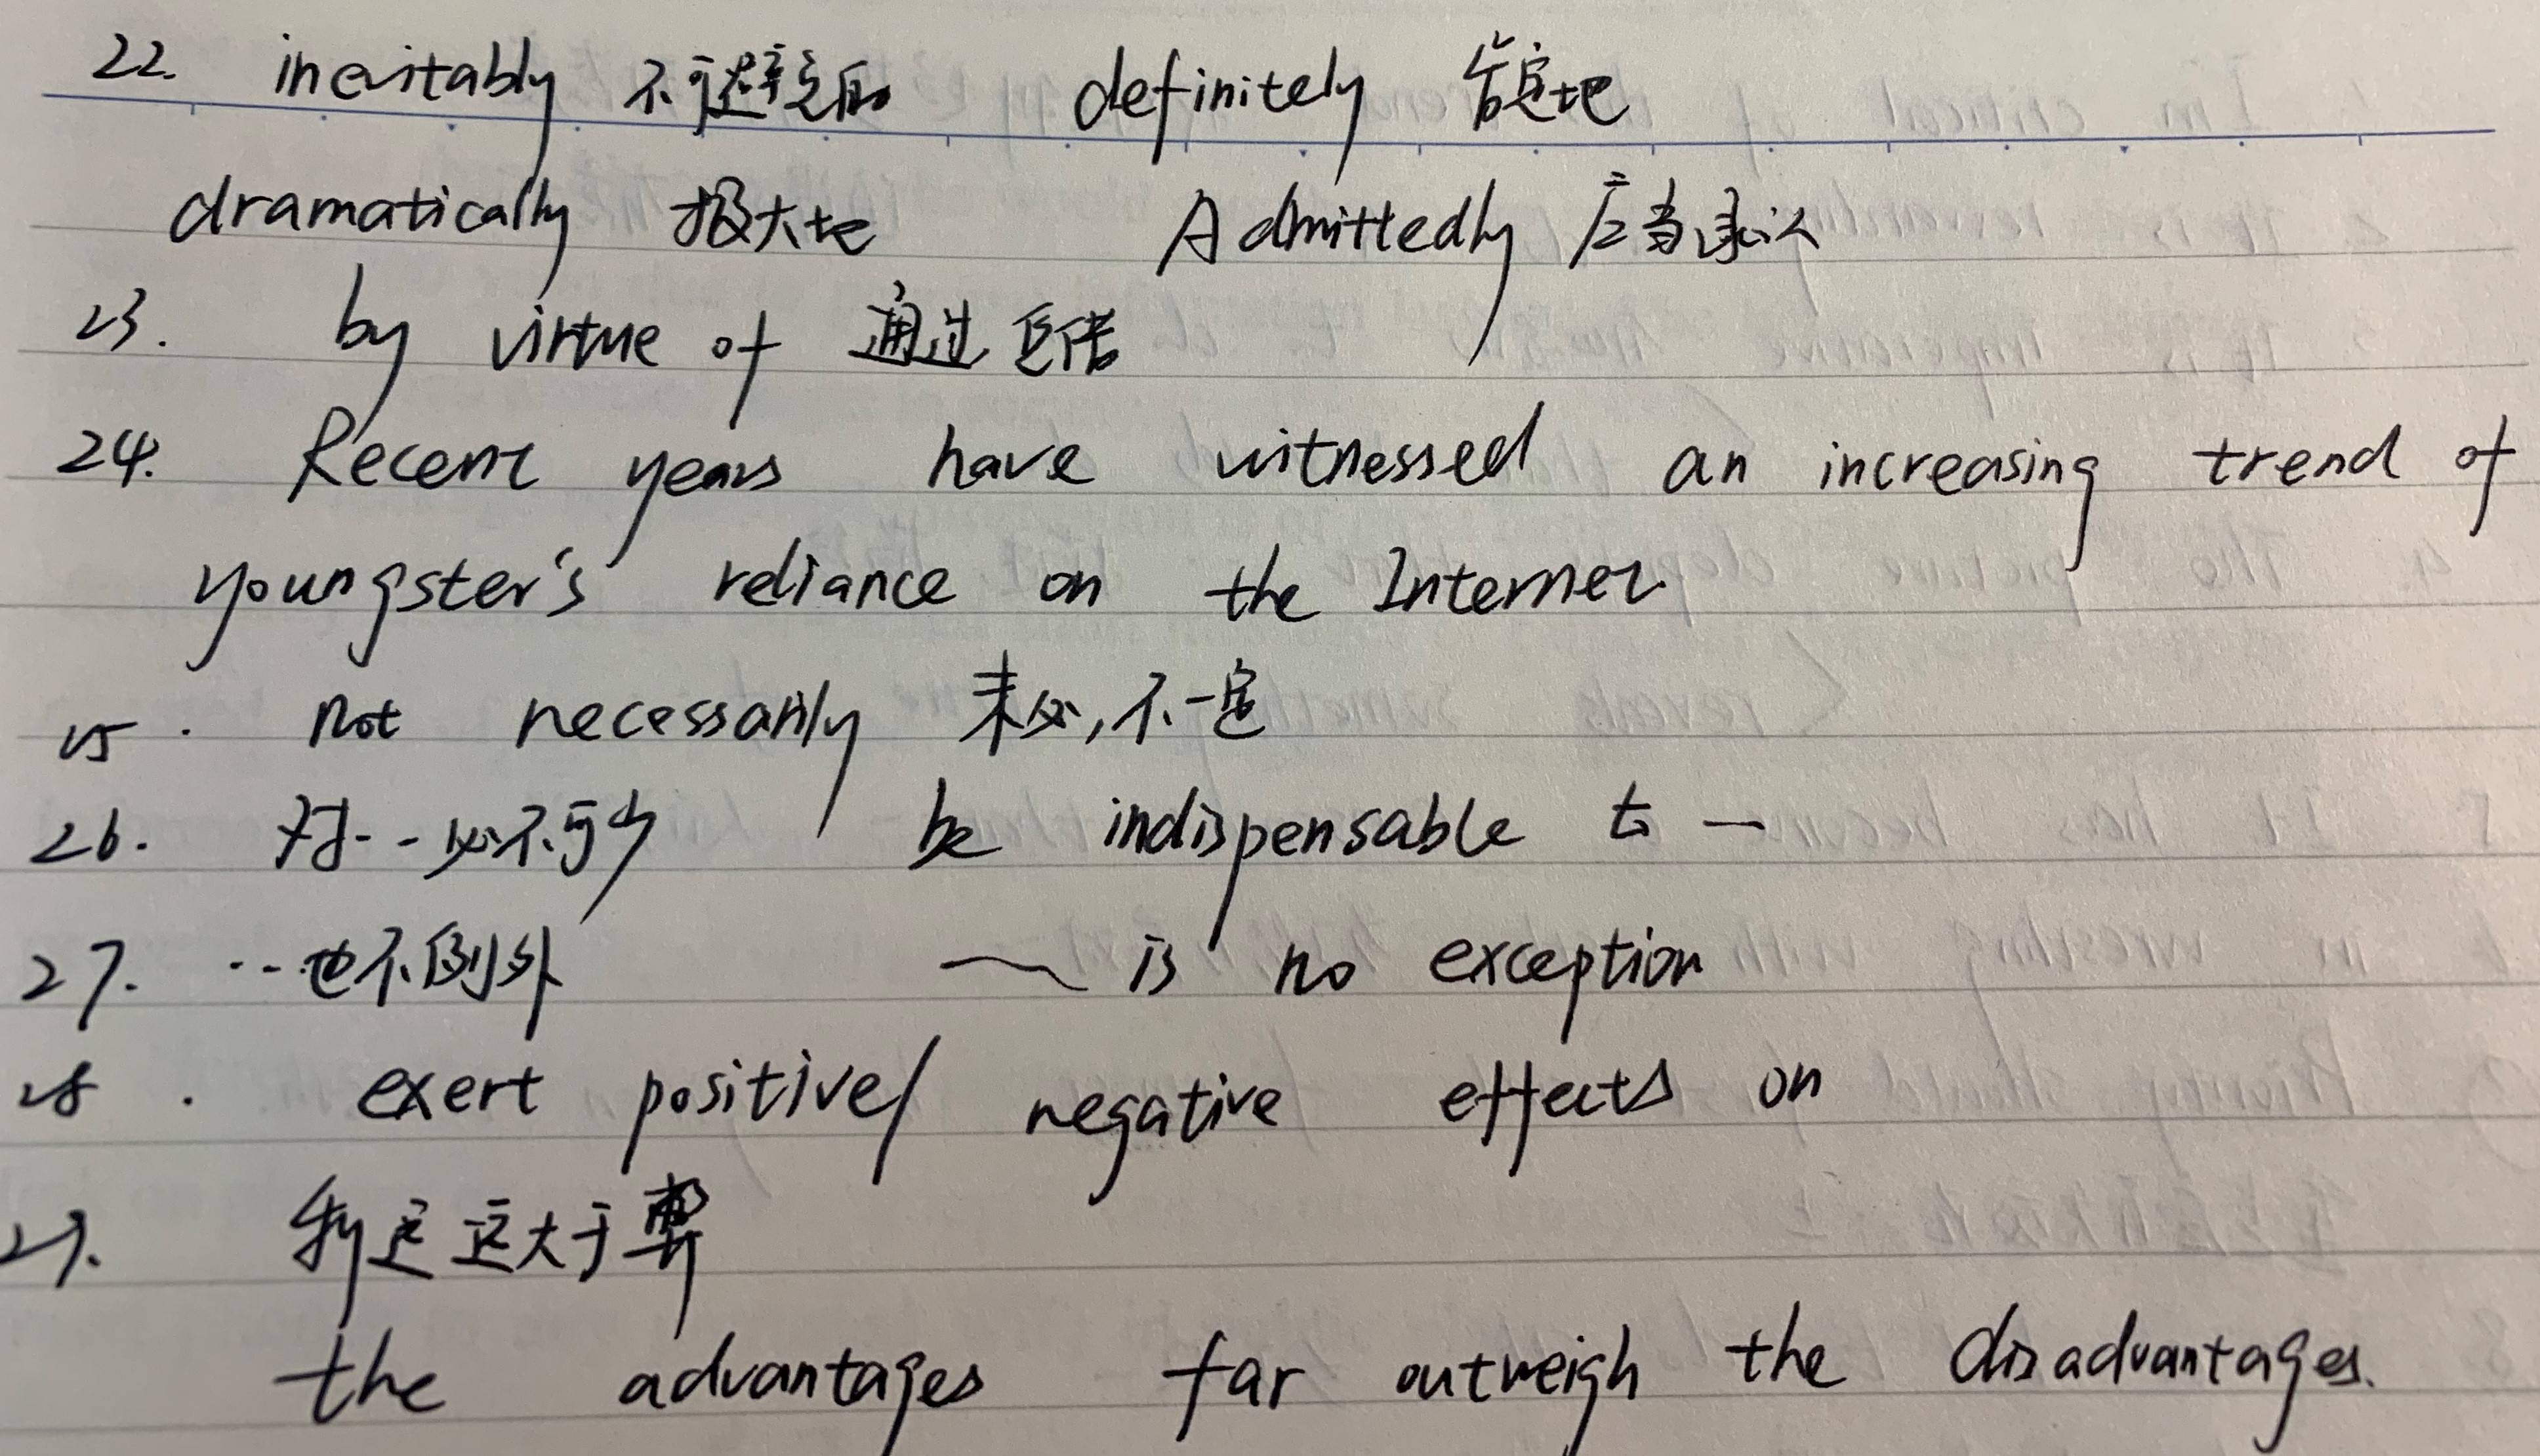 22. inevitably 不可避免的 definitely 肯定地
dramatically 极大地 Admittedly 应当承认
23. by virtue of 通过
24. Recent years have witnessed an increasing trend of
youngster's reliance on the Internet.
25. not necessarily 未必,不一定
26. 对--必不可少 be indispensable to —
27. ---也不例外 —— is no exception
28. exert positive/ negative effects on
29. 利远远大于弊
the advantages far outweigh the disadvantages.